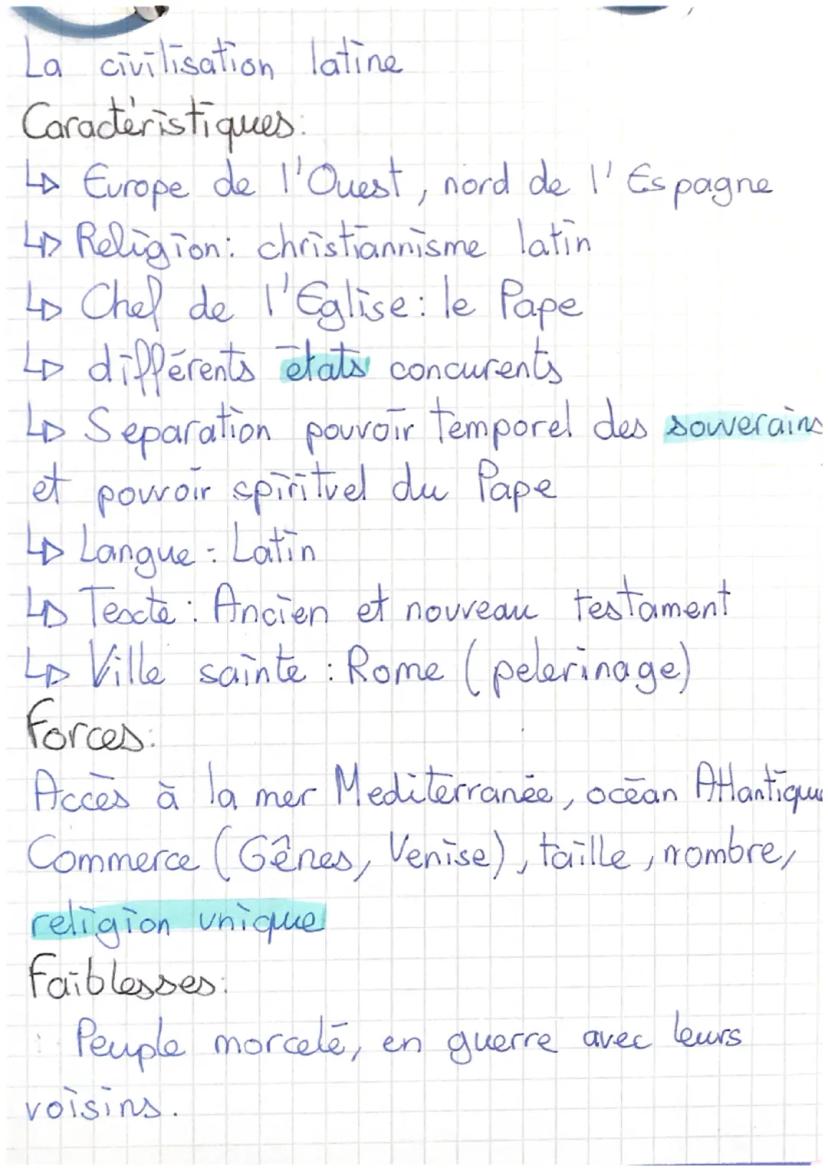 La civilisation latine
Caractéristiques:
↳ Europe de l'Ouest, nord de l'Espagne
↳ Religion: christiannisme latin
↳ Chef de l'Eglise: le Pape
↳ différents états concurents
↳ Separation pouvoir temporel des souverains
et pouvoir spirituel du Pape
↳ Langue: Latin
↳ Texte: Ancien et nouveau testament
↳ Ville sainte: Rome (pelerinage)
Forces:
Accès à la mer Mediterranée, océan Atlantique
Commerce (Gênes, Venise), taille, nombre,
religion unique
Faiblesses:
Peuple morcelé, en guerre avec leurs
voisins.